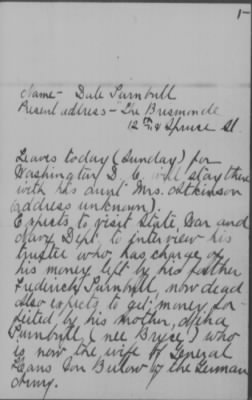 1-
Name - Dale Turnbull
Present address - The Brismonde
12th & Spruce St.
Leaves today (Sunday) for
Washington D. C. will stay there
with his aunt Mrs. Atkinson
(address unknown).
Expects to visit State, War and
Navy Dept. to interview his
trustee who has charge of
his money left by his father
Frederick Turnbull, now dead
also expects to get money for-
feited by his mother,
Turnbull (nee Bryce) who
is now the wife of General
Hans Von Bulow of the German
Army.